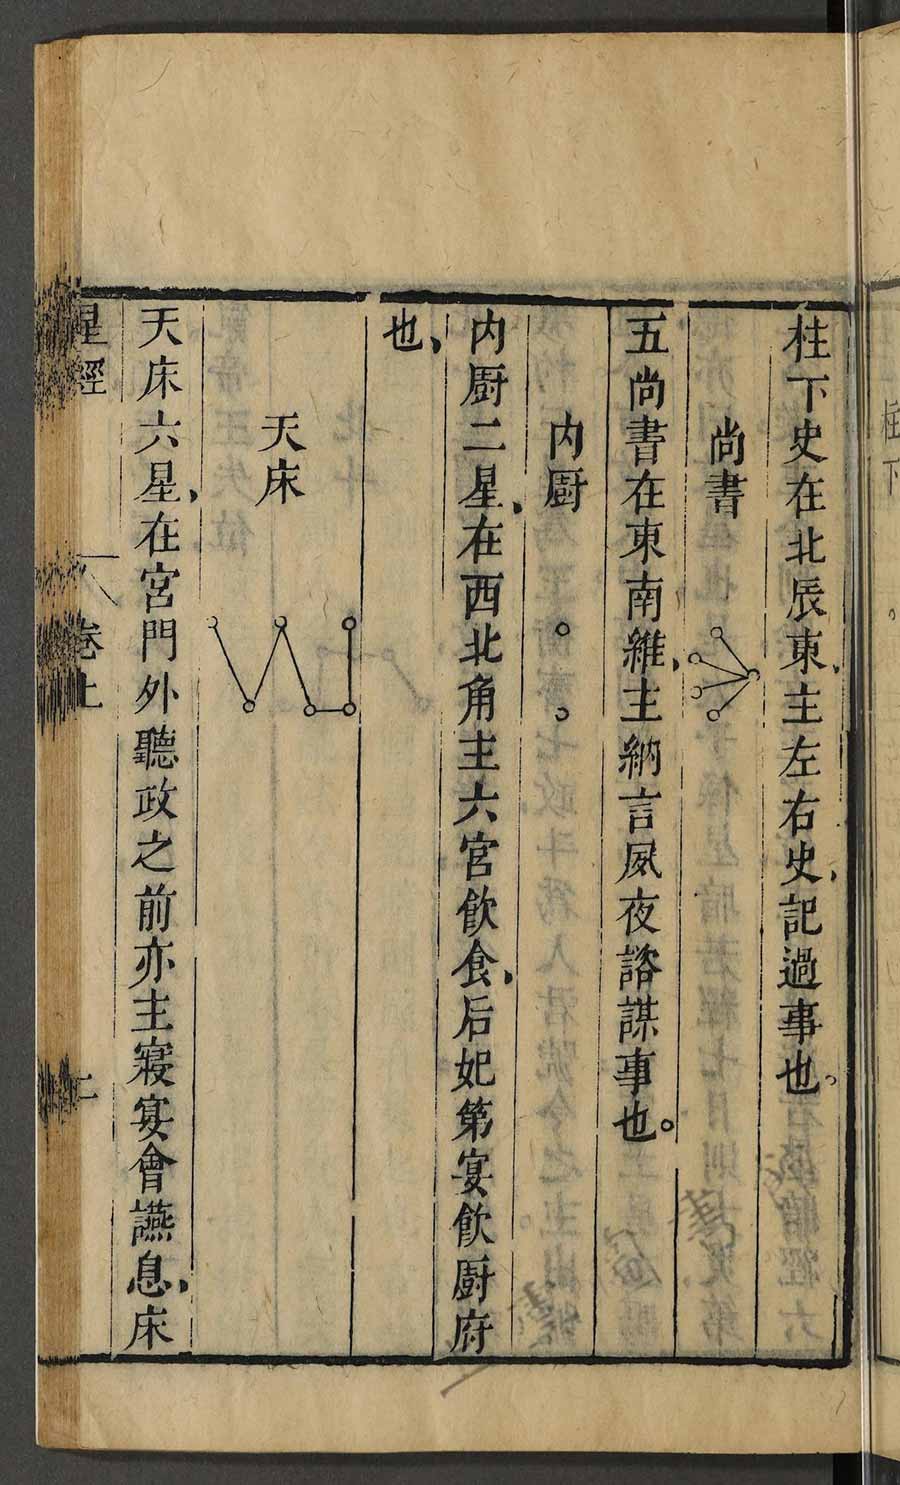 柱下史在北辰東主左右史記過事也
尚書
五尚書在東南維主納言夙夜諮謀事也
内厨
内厨二星在西北角主六宮飲食后妃第宴飲厨府
也
天床
天床六星在宮門外聽政之前亦主寢宴會讌息床
星經
卷上
二